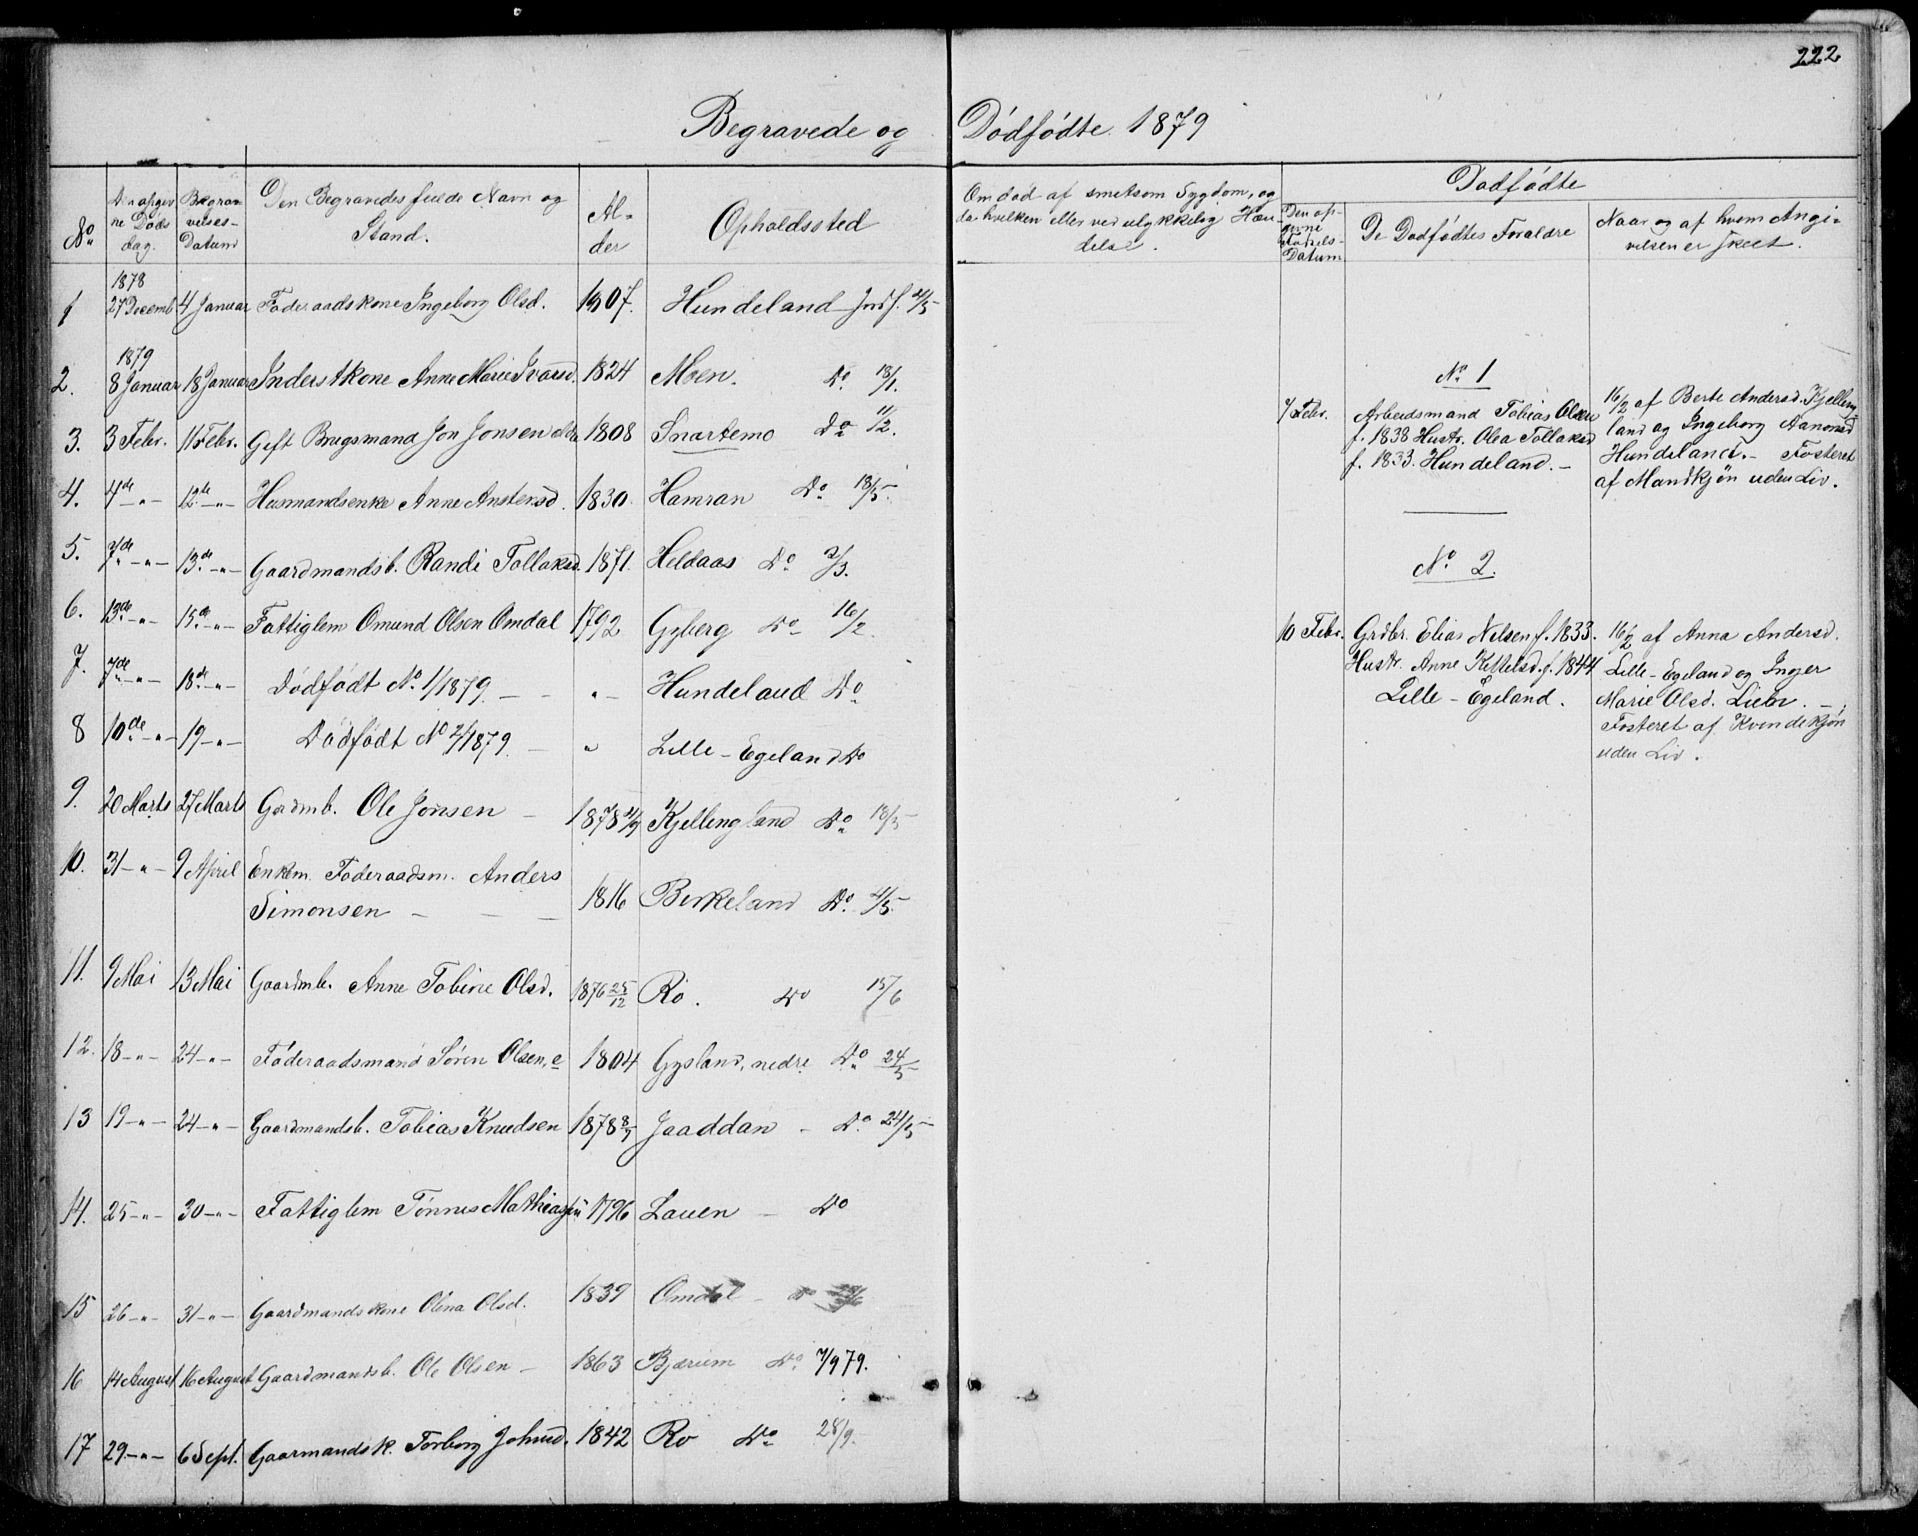 222
Begravede og Dödfödte 1879
No
Den opgiv
ne Döds
dag.
Begrav
velses-
Datum
Den Begravedes fulde Navn og
Stand.
Al-
der
Opholdssted
Om död af smitsom Sygdom, og
da hvilken eller ved ulykkelig Hæn-
delse.
Dödfödte
Den op-
givne
Födsels-
Datum
De Dödfödtes Forældre
Naar og af hvem Angi-
velsen er skeet.
1878
1 27 Decemb 4 Januar Föderaadskone Ingeborg Olsd. 1807. Hundeland Indf. 4/5
1879
2. 8 Januar 18 Januar Inderstkone Anne Marie Ivarsd. 1824 Moen. Do 18/1.
3. 3 Febr. 11 Febr. Gift Brugsmand Jon Jonsen 1808 Snartemo Do 11/2.
4. 4de -"- 12te -"- Husmandsenke Anne Anstensd. 1830. Hamran Do 18/5.
5. 7de -"- 13de -"- Gaardmandsb. Randi Tollaksd. 1871. Heldaas Do 2/3.
6. 13de -"- 15de -"- Fattiglem Omund Olsen Omdal 1792 Gyberg Do 16/2
7. 7de -"- 18de -"- Dödfödt No 1/1879 - - "- Hundeland Do
8 10de -"- 19 -"- Dödfödt No 2/1879. - " Lille-Egeland Do
9. 20 Marts 27 Marts Grdmb. Ole Jonsen - 1878 Kjellingland Do 18/5
10. 31 -"- 9 April Enkem. Föderaadsm. Anders
Simonsen - - - 1816 Birkeland Do. 4/5.
11. 9 Mai 13 Mai Gaardmb. Anne Tobine Olsd. 1876 25/12 Rö. Do 15/6
12. 18 -"- 24 -"- Föderaadsmand Sören Olsen, e 1804 Gysland, nedre Do 24/5
13 19 -"- 24 -"- Gaardmandsb. Tobias Knudsen 1878 8/7 Jaaddan - Do 24/5
14. 25 -"- 30 -"- Fattiglem Tönnes Mathiassen 1796 Lauen - Do
15 26 -"- 31 -"- Gaardmandskone Olena Olsd. 1839 Omdal - Do
16 14 August 16 August Gaardmandsb. Ole Olsen - 1863 Bjærum Do 7/9 79.
17 29 -"- 6 Sept. Gaarmandsk. Torborg Johnsd. 1842 Ro Do 28/9.
No 1
7 Febr.
Arbeidsmand Tobias Olsen
f. 1838 Hustr. Olea Tollaksd
f. 1833. Hundeland. -
16/2 af Berte Andersd. Kjelling
land og Ingeborg Aanonsd
Hundeland. - Fosteret
af Mandkjön uden Liv.
No 2.
10 Febr.
Grdbr. Elias Nelsen f. 1833.
Hustr. Anne Kittelsd. f. 1844
Lille-Egeland.
16/2 af Anna Andersd.
Lille-Egeland og Inger
Marie Olsd. Lieb. -
Fosteret af Kvindekjön
uden Liv.